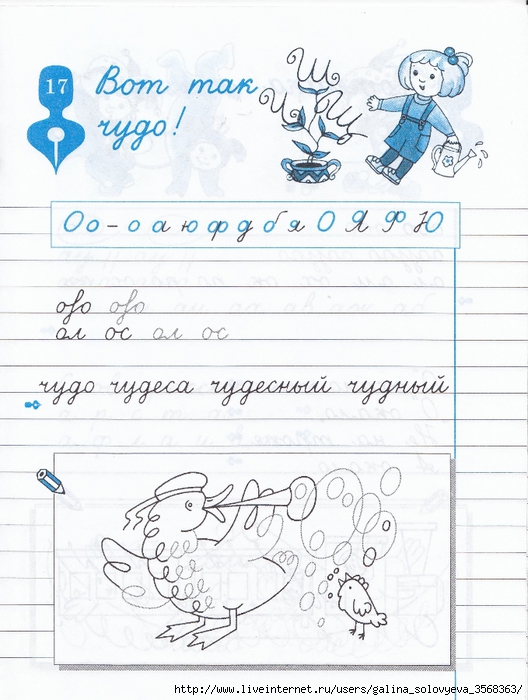 17
Вот так
чудо!
И Ш Щ
Оо – о а ю ф д б я О Я Ф Ю
ово ово
ол ос ол ос
чудо чудеса чудесный чудный
http://www.liveinternet.ru/users/galina_solovyeva_3568363/